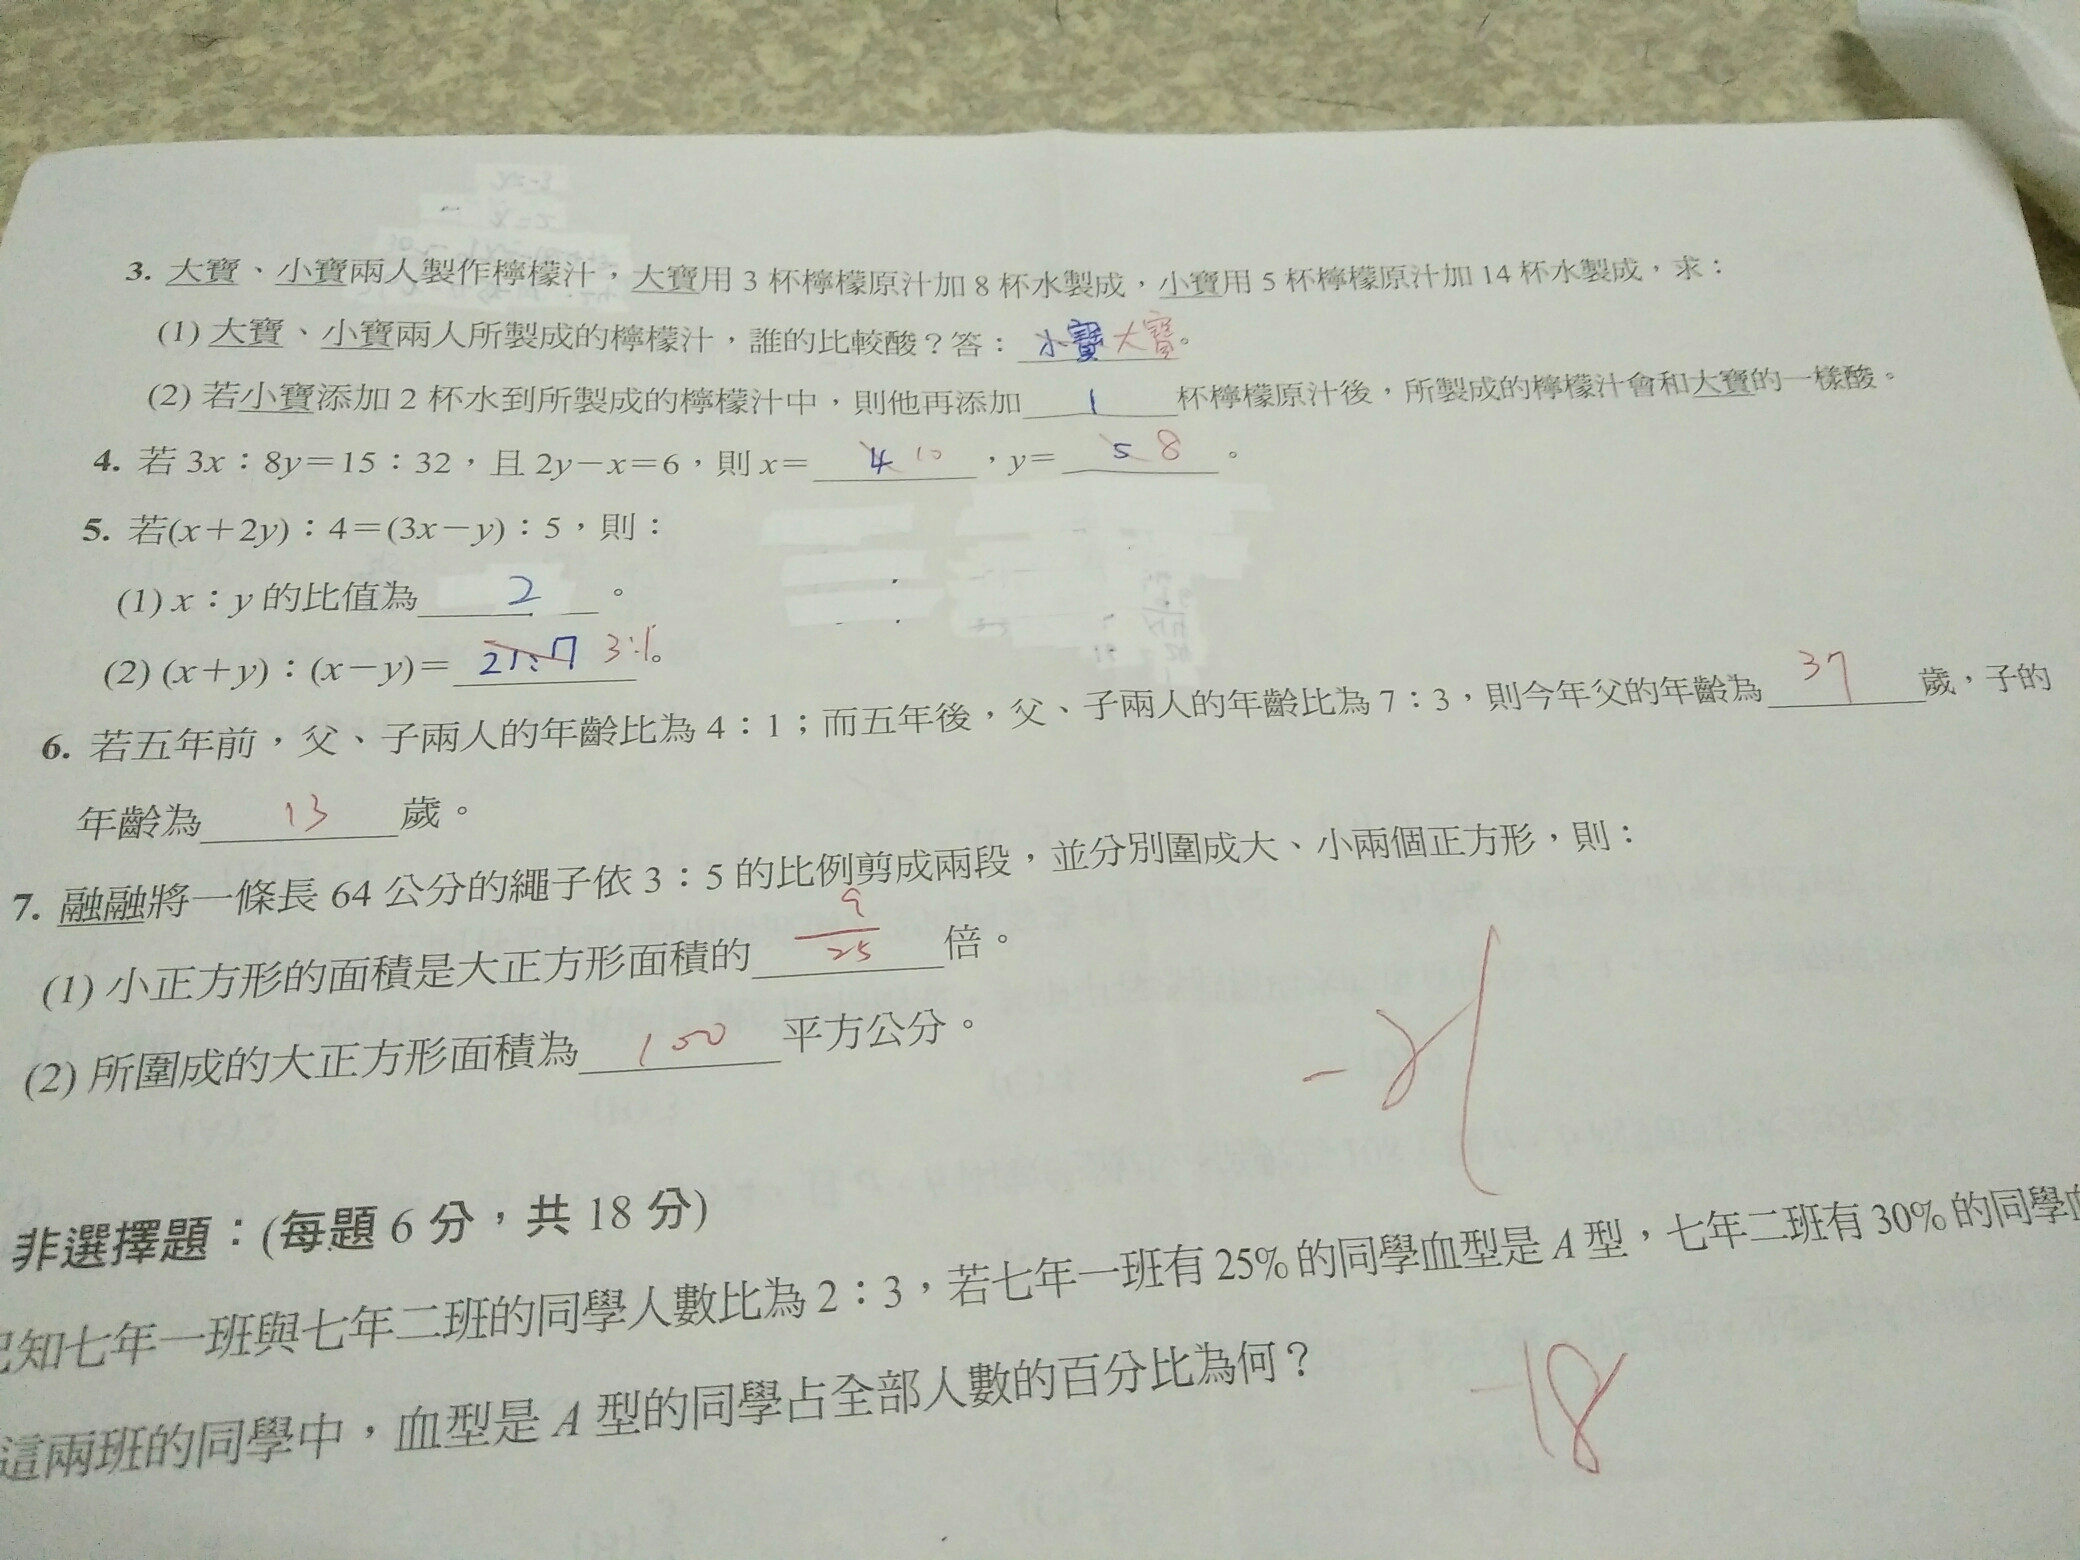 3. 大寶、小寶兩人製作檸檬汁，大寶用 3 杯檸檬原汁加 8 杯水製成，小寶用 5 杯檸檬原汁加 14 杯水製成，求：
(1) 大寶、小寶兩人所製成的檸檬汁，誰的比較酸？答： 小寶 大寶。
(2) 若小寶添加 2 杯水到所製成的檸檬汁中，則他再添加 1 杯檸檬原汁後，所製成的檸檬汁會和大寶的一樣酸。
4. 若 3x：8y＝15：32，且 2y－x＝6，則 x＝ 4 10 ，y＝ 5 8 。
5. 若(x＋2y)：4＝(3x－y)：5，則：
(1) x：y 的比值為 2 。
(2) (x＋y)：(x－y)＝ 21:17 3:1。
6. 若五年前，父、子兩人的年齡比為 4：1；而五年後，父、子兩人的年齡比為 7：3，則今年父的年齡為 37 歲，子的
年齡為 13 歲。
7. 融融將一條長 64 公分的繩子依 3：5 的比例剪成兩段，並分別圍成大、小兩個正方形，則：
(1) 小正方形的面積是大正方形面積的 9/25 倍。
(2) 所圍成的大正方形面積為 100 平方公分。
-21
非選擇題：(每題 6 分，共 18 分)
已知七年一班與七年二班的同學人數比為 2：3，若七年一班有 25% 的同學血型是 A 型，七年二班有 30% 的同學血
這兩班的同學中，血型是 A 型的同學占全部人數的百分比為何？
-18